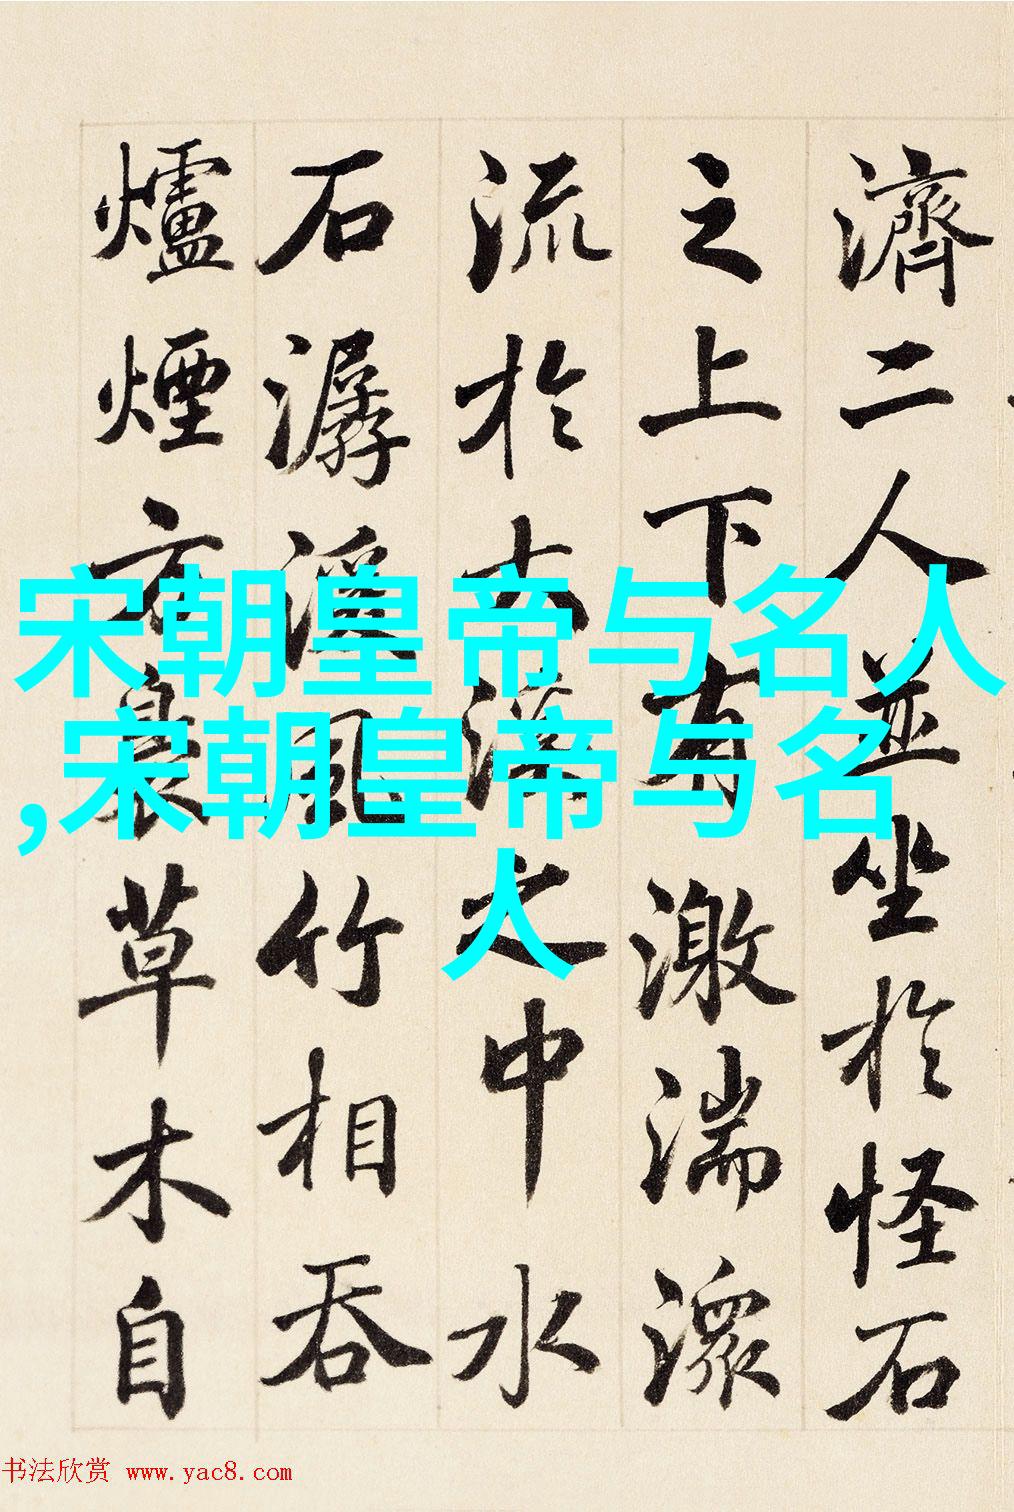 濟二人並坐於怪石
之上下有激湍潨
流於大溪之中水
石潺湲風竹相吞
爐煙方裊草木自
宋朝皇帝与名人
,宋朝皇帝与名
人
书法欣赏 www.yac8.com